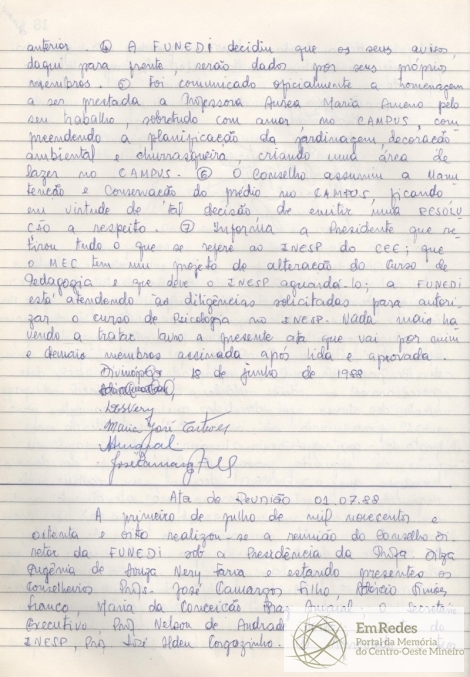 anterior. 4) A FUNEDI decidiu que os seus avisos,
daqui para frente, serão dados por seus próprios
membros. 5) Foi comunicado oficialmente a homenagem
a ser prestada a Professora Aurea Maria Ameno pelo
seu trabalho, sobretudo com amor no CAMPUS, com
preendendo a planificação da jardinagem, decoração
ambiental e churrasqueira, criando uma área de
lazer no CAMPUS. 6) O Conselho assumiu a Manu
tenção e Conservação do prédio no CAMPUS, ficando
em virtude de tal decisão de emitir uma RESOLU
ÇÃO a respeito. 7) Informa a Presidente que re
tirou tudo o que se refere ao INESP do CEE; que
o MEC tem um projeto de alteração do Curso de
Pedagogia e que deve o INESP aguardá-lo; a FUNEDI
está atendendo às diligências solicitadas para autori
zar o curso de Psicologia no INESP. Nada mais ha
vendo a tratar lavro a presente ata que vai por mim
e demais membros assinada após lida e aprovada.
Divinópolis 18 de junho de 1988
Maria José
José Camargos
Ata da Reunião 01.07.88
A primeiro de julho de mil novecentos e
oitenta e oito realizou-se a reunião do Conselho Di
retor da FUNEDI sob a Presidência da Profa
Eugênia de Souza Nery Faria e estando presentes os
Conselheiros Profs. José Camargos Filho
Franco, Maria da Conceição Braz Amaral. O Secretário
Executivo, Prof Nelson de Andrade
INESP, Prof José Ildeu Corgozinho.
EmRedes
Portal da Memória
do Centro-Oeste Mineiro